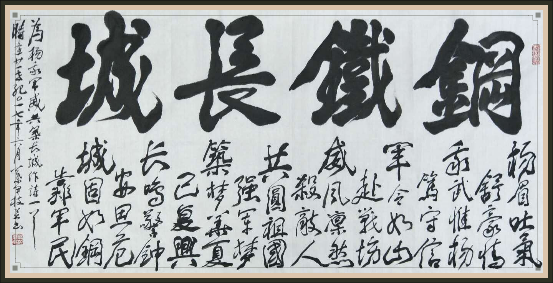 鋼鐵長城
楊眉吐氣
舒豪情
承武惟楊
篤守信
軍令如山
赴戰場
威風凜然
殺敵人
共圓祖國
強軍夢
築夢華夏
已復興
長鳴警鐘
安思危
城固如鋼
靠軍民
為楊承軍威共築長城作詩一
世紀二〇一七年六月